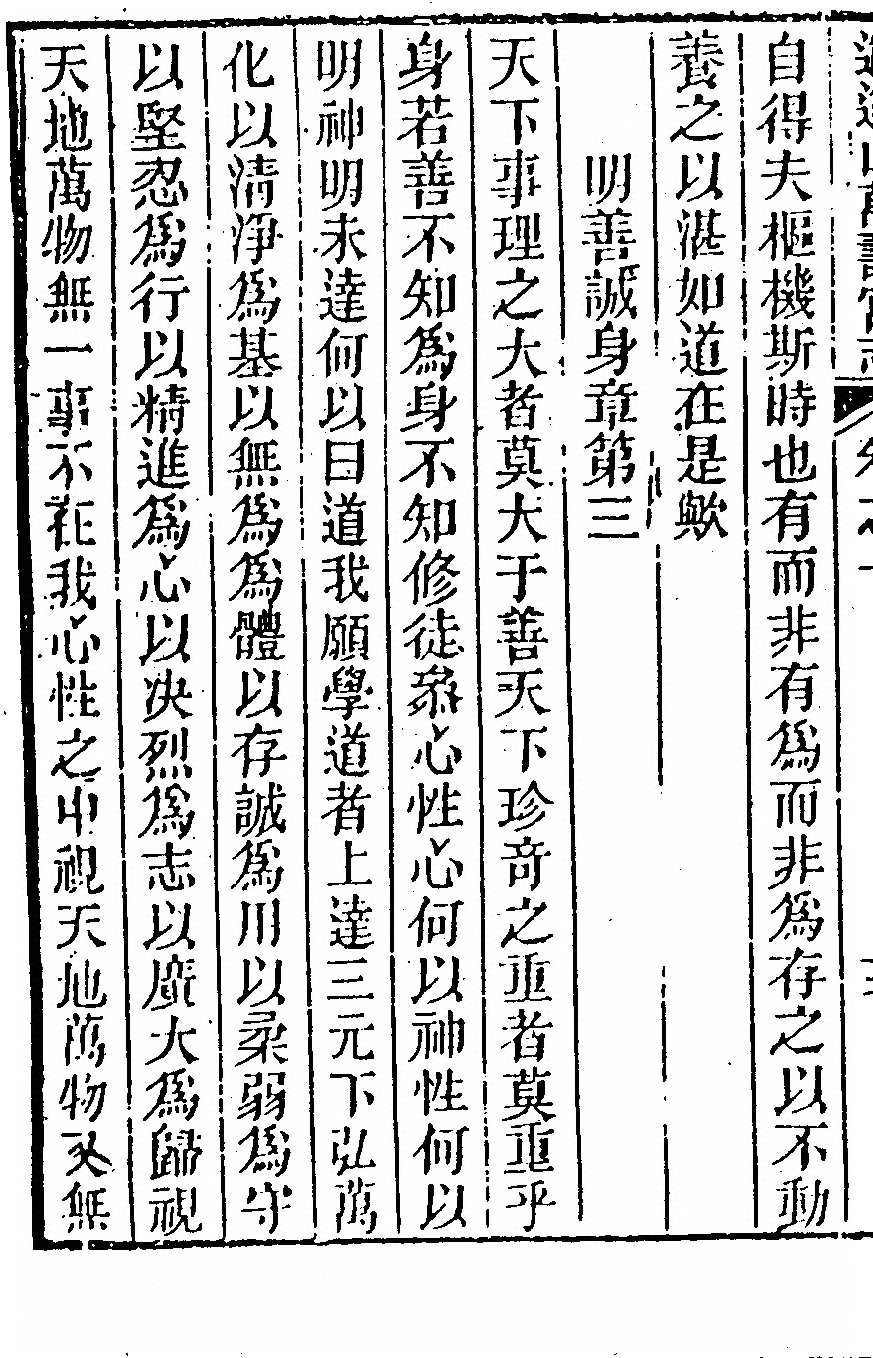 自得夫樞機斯時也有而非有爲而非爲存之以不動
養之以湛如道在是歟
明善誠身章第三
天下事理之大者莫大于善天下珍奇之重者莫重乎
身若善不知爲身不知修徒叅心性心何以神性何以
明神明未達何以曰道我願學道者上達三元下弘萬
化以清淨爲基以無爲爲體以存誠爲用以柔弱爲守
以堅忍爲行以精進爲心以決烈爲志以廣大爲歸視
天地萬物無一事不在我心性之中視天地萬物又無